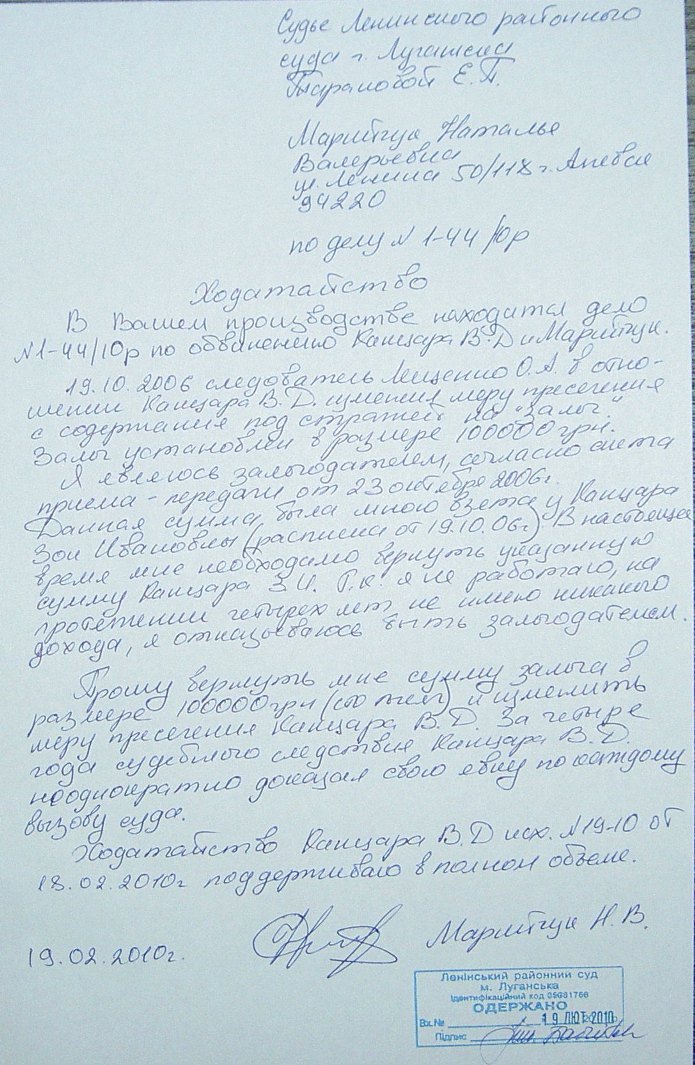 Судье Ленинского районного
суда г. Луганска
Тарановой Е.П.
Наталье
Валерьевна
ул. Ленина 50/118 г.
94220
по делу N 1-44/10р
Ходатайство
В Вашем производстве находится дело
N1-44/10р по обвинению Канцара В.Д и
19.10.2006 следователь Лещенко О.А. в отно-
шении Канцара В.Д. изменил меру пресечения
с содержания под стражей на "залог."
Залог установлен в размере 100000 грн.
Я являюсь залогодателем, согласно
приема-передачи от 23 октября 2006г.
Данная сумма была мною взята у Канцара
Зои Ивановны (расписка от 19.10.06г.) В настоящее
время мне необходимо вернуть указанную
сумму Канцара З.И. Т.к. я не работаю, на
протяжении четырех лет не имею никакого
дохода, я отказываюсь быть залогодателем.
Прошу вернуть мне сумму залога в
размере 100000грн (сто тысяч) и изменить
меру пресечения Канцара В.Д. За четыре
года судебного следствия Канцара В.Д.
неоднократно доказал свою явку по каждому
вызову суда.
Ходатайство Канцара В.Д исх. N19-10 от
18.02.2010г поддерживаю в полном объеме.
19.02.2010г. Н.В.
Ленінський районний суд
м. Луганська
Ідентифікаційний код
ОДЕРЖАНО
Вх.№ 19 ЛЮТ 2010
Підпис